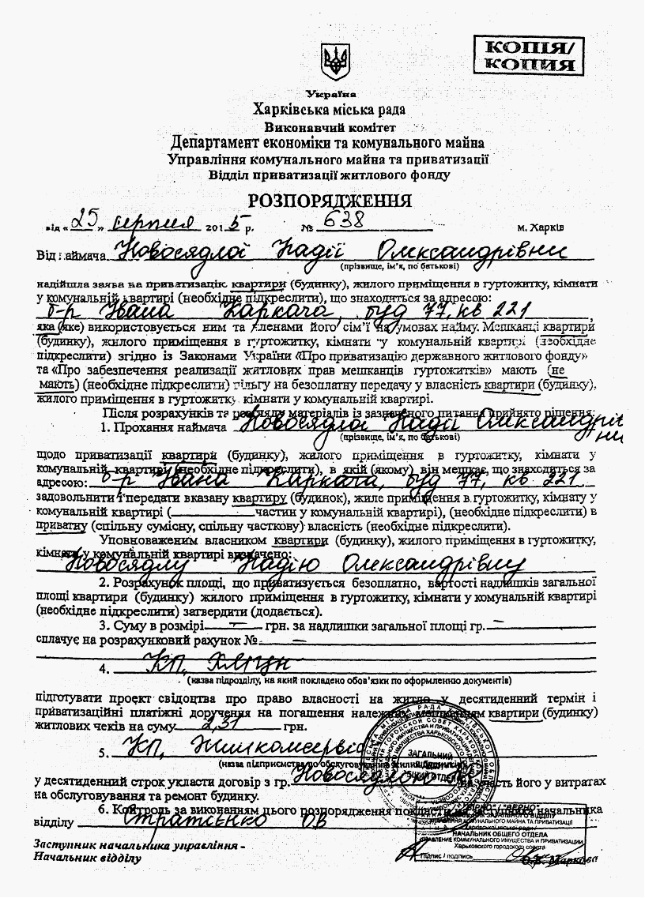 КОПІЯ/
КОПИЯ
Україна
Харківська міська рада
Виконавчий комітет
Департамент економіки та комунального майна
Управління комунального майна та приватизації
Відділ приватизації житлового фонду
РОЗПОРЯДЖЕННЯ
від «25» серпня 2015 р. № 638 м. Харків
Від наймача Новосядлої Надії Олександрівни
(прізвище, ім'я, по батькові)
надійшла заява на приватизацію квартири (будинку), жилого приміщення в гуртожитку, кімнати
у комунальній квартирі (необхідне підкреслити), що знаходиться за адресою:
б-р Івана Каркача, буд 77, кв 221
яка (яке) використовується ним та членами його сім'ї на умовах найму. Мешканці квартири
(будинку), жилого приміщення в гуртожитку, кімнати у комунальній квартирі (необхідне
підкреслити) згідно із Законами України «Про приватизацію державного житлового фонду»
та «Про забезпечення реалізації житлових прав мешканців гуртожитків» мають (не
мають) (необхідне підкреслити) пільгу на безоплатну передачу у власність квартири (будинку),
жилого приміщення в гуртожитку, кімнати у комунальній квартирі.
Після розрахунків та розгляду матеріалів із зазначеного питання прийнято рішення:
1. Прохання наймача Новосядлої Надії Олександрівни
(прізвище, ім'я, по батькові)
щодо приватизації квартири (будинку), жилого приміщення в гуртожитку, кімнати у
комунальній квартирі (необхідне підкреслити), в якій (якому) він мешкає, що знаходиться за
адресою: б-р Івана Каркача, буд 77, кв 221
задовольнити і передати вказану квартиру (будинок), жиле приміщення в гуртожитку, кімнату у
комунальній квартирі ( частин у комунальній квартирі), (необхідне підкреслити) в
приватну (спільну сумісну, спільну часткову) власність (необхідне підкреслити).
Уповноваженим власником квартири (будинку), жилого приміщення в гуртожитку,
кімнати у комунальній квартирі визначено:
Новосядлу Надію Олександрівну
2. Розрахунок площі, що приватизується безоплатно, вартості надлишків загальної
площі квартири (будинку) жилого приміщення в гуртожитку, кімнати у комунальній квартирі
(необхідне підкреслити) затвердити (додається).
3. Суму в розмірі — грн. за надлишки загальної площі гр. —
сплачує на розрахунковий рахунок № —
4. КП
(назва підрозділу, на який покладено обов'язки по оформленню документів)
підготувати проект свідоцтва про право власності на житло у десятиденний термін і
приватизаційні платіжні доручення на погашення належних мешканцям квартири (будинку)
житлових чеків на суму 2,31 грн.
5. КП Жилкомсервіс
(назва підприємства по обслуговуванню
у десятиденний строк укласти договір з гр. Новосядлою участь його у витратах
на обслуговування та ремонт будинку.
6. Контроль за виконанням цього розпорядження начальника
відділу
Заступник начальника управління -
Начальник відділу
ЗАГАЛЬНИЙ
НАЧАЛЬНИК ОБЩЕГО ОТДЕЛА
УПРАВЛЕНИЕ КОММУНАЛЬНОГО ИМУЩЕСТВА И ПРИВАТИЗАЦИИ
Харьковского городского совета
Підпис / подпись